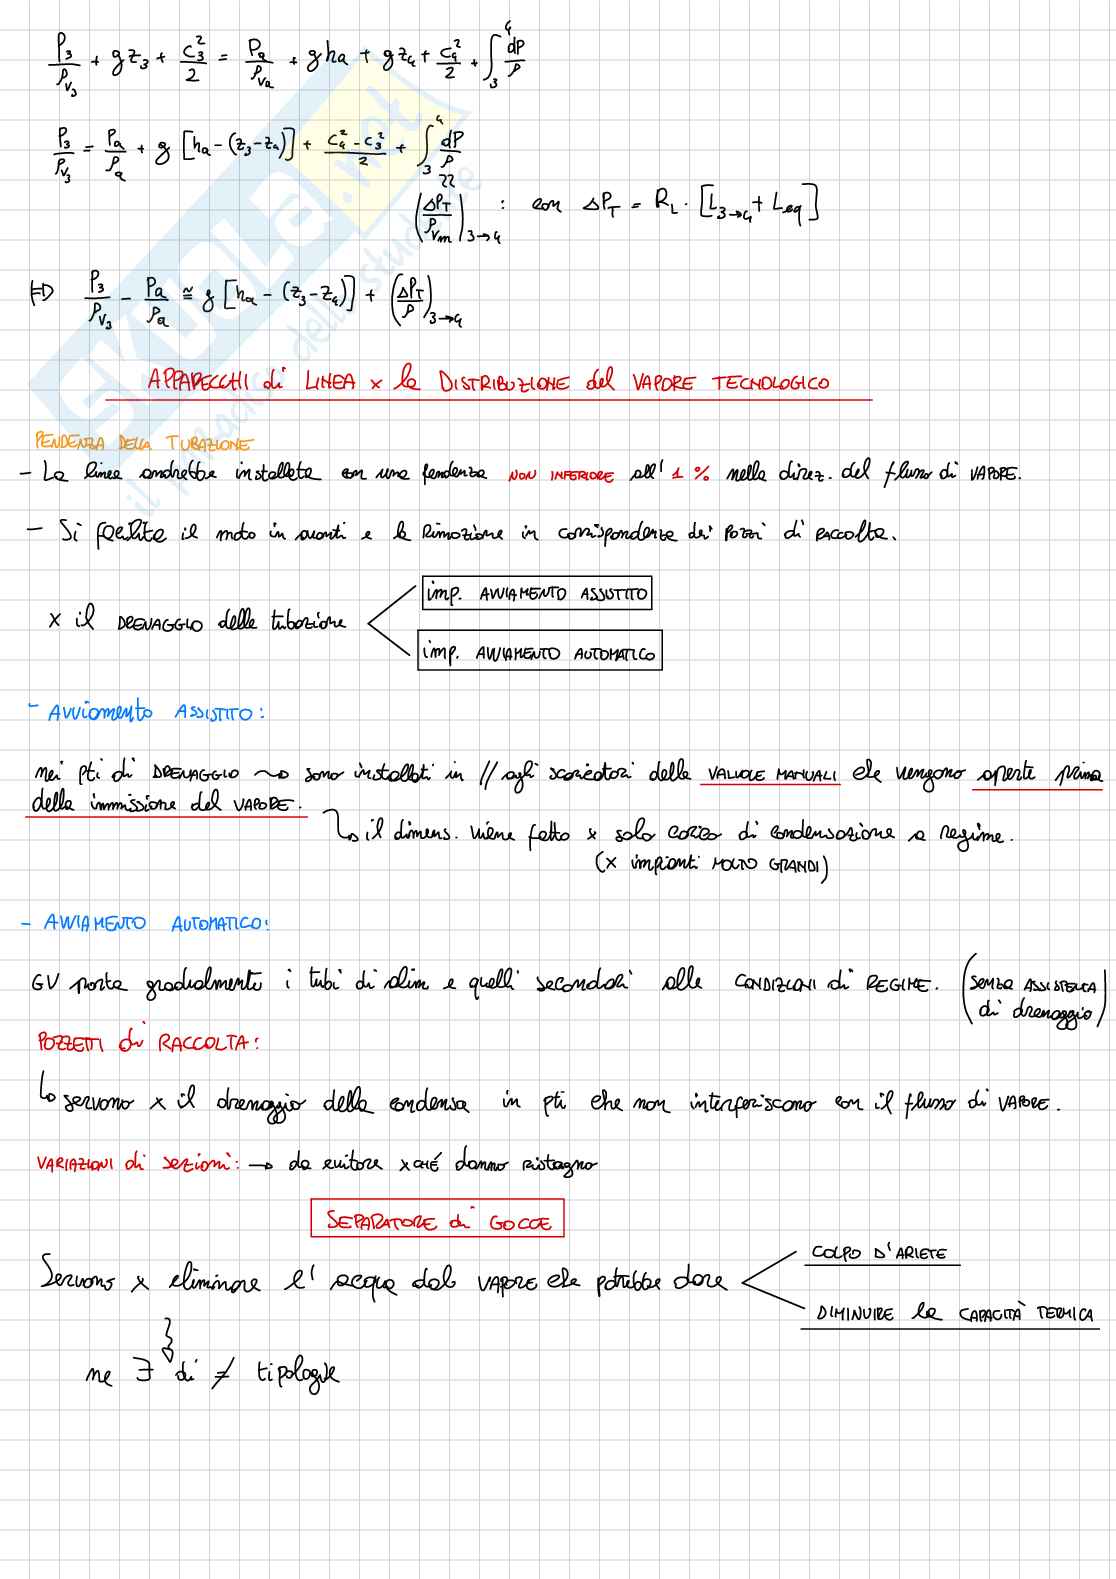 P₃/ρ_V₃ + g z₃ + c₃²/2 = Pₐ/ρ_Vₐ + g hₐ + g z₄ + c₄²/2 + ∫₃⁴ dP/ρ
P₃/ρ_V₃ = Pₐ/ρₐ + g [hₐ - (z₃-z₄)] + (c₄² - c₃²)/2 + ∫₃⁴ dP/ρ
(ΔP_T/ρ_Vm)₃→₄ : con ΔP_T = R_L · [L₃→₄ + Leq]
⇒ P₃/ρ_V₃ - Pₐ/ρₐ ≅ g [hₐ - (z₃-z₄)] + (ΔP_T/ρ)₃→₄
APPARECCHI di LINEA x la DISTRIBUZIONE del VAPORE TECNOLOGICO
PENDENZA DELLA TUBAZIONE
- La linea andrebbe installata con una pendenza NON INFERIORE all' 1 % nella direz. del flusso di VAPORE.
- Si facilita il moto in avanti e la rimozione in corrispondenza dei POZZI di RACCOLTA.
x il DRENAGGIO della tubazione
imp. AVVIAMENTO ASSISTITO
imp. AVVIAMENTO AUTOMATICO
- AVViamento ASSISTITO:
nei pti di DRENAGGIO → sono installati in // agli scaricatori delle VALVOLE MANUALI che vengono aperte prima
della immissione del VAPORE.
↳ il dimens. viene fatto x solo carico di condensazione a regime.
(x impianti MOLTO GRANDI)
- AVVIAMENTO AUTOMATICO:
GV porta gradualmente i tubi di alim e quelli secondari alle CONDIZIONI di REGIME. (senza ASSISTENZA
di drenaggio)
POZZETTI di RACCOLTA:
↳ servono x il drenaggio della condensa in pti che non interferiscono con il flusso di VAPORE.
VARIAZIONI di sezioni: → da evitare xché danno ristagno
SEPARATORE di GOCCE
Servono x eliminare l' acqua dal VAPORE che potrebbe dare
COLPO D'ARIETE
DIMINUIRE la CAPACITÀ TERMICA
ne ∃ di ≠ tipologie
SKUOLA.net
il paradiso dello studente